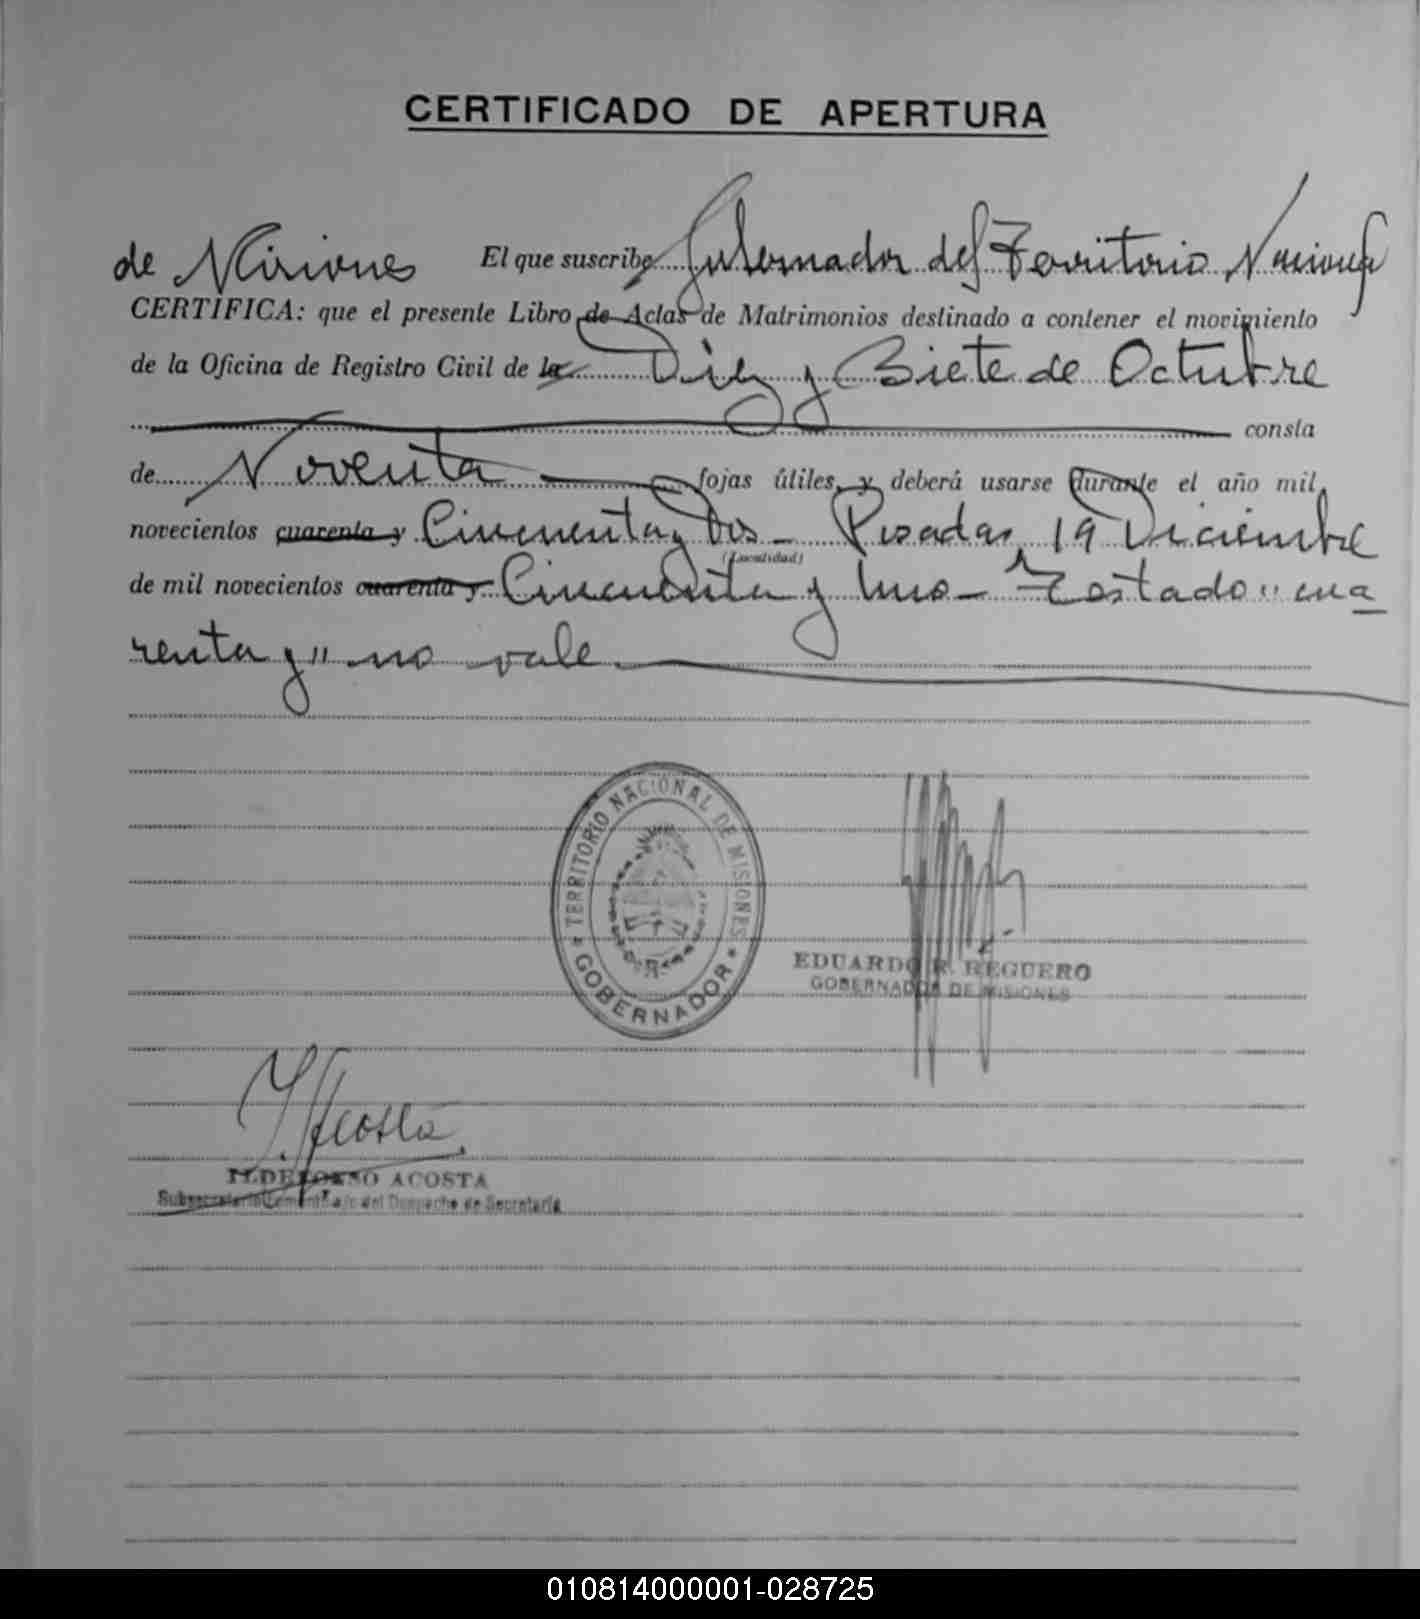 CERTIFICADO DE APERTURA
El que suscribe Gobernador del Territorio Nacional
de Misiones
CERTIFICA: que el presente Libro de Actas de Matrimonios destinado a contener el movimiento
de la Oficina de Registro Civil de la Diez y Siete de Octubre
consta
de Noventa fojas útiles, y deberá usarse durante el año mil
novecientos cuarenta y Cincuenta y Dos - Posadas, 19 Diciembre
(Localidad)
de mil novecientos cuarenta y Cincuenta y Uno - Testado "cua
renta y" no vale
TERRITORIO NACIONAL DE MISIONES
GOBERNADOR
EDUARDO R. REGUERO
GOBERNADOR DE MISIONES
I. Acosta
ILDEFONSO ACOSTA
a/c del Despacho de Secretaría
010814000001-028725